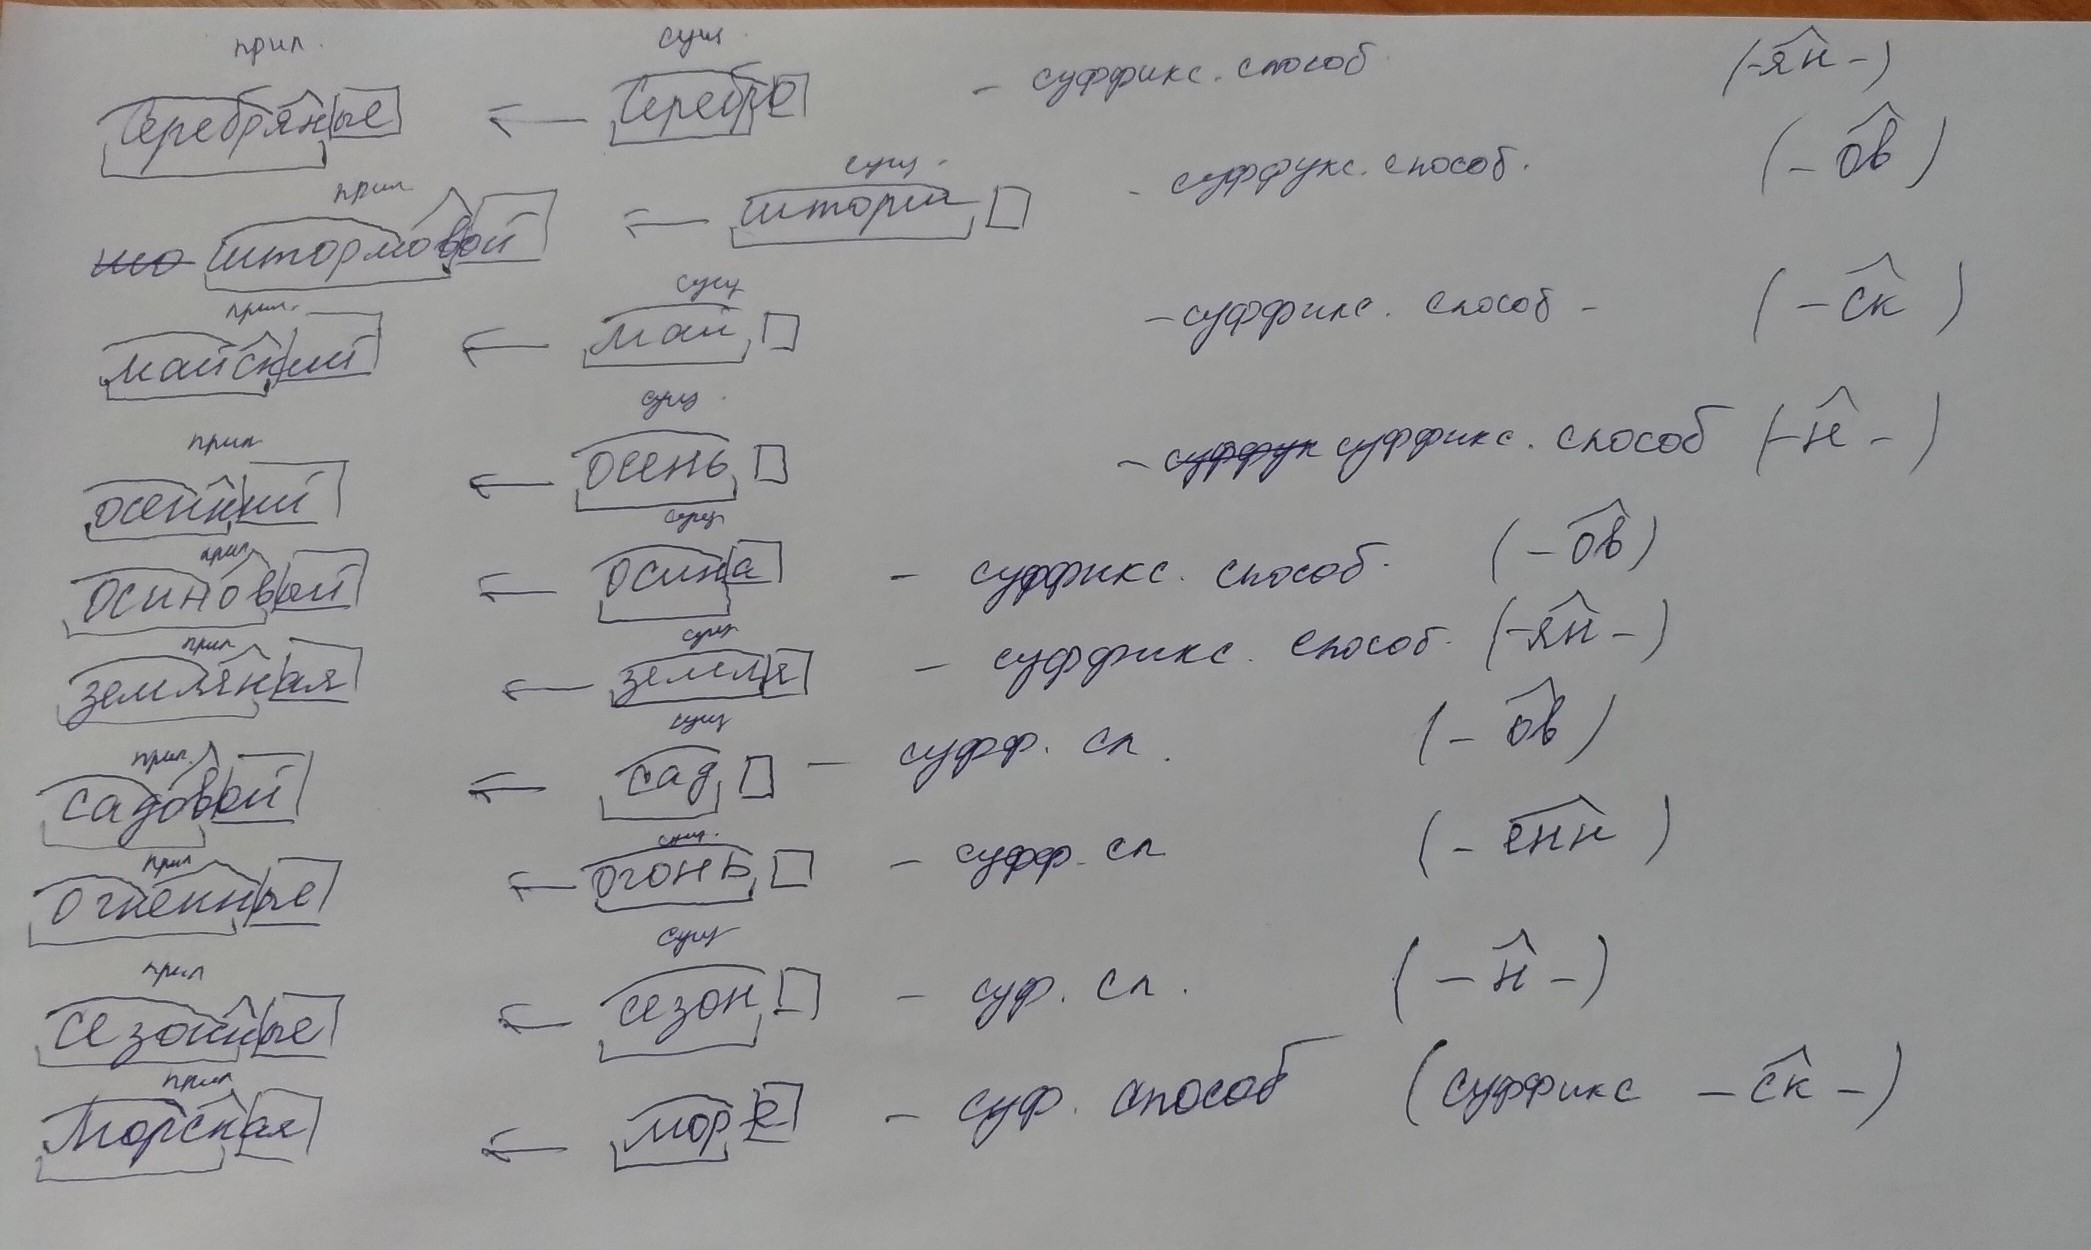 прил. сущ
Серебряные ← Серебро - суффикс. способ (-ян-)
прил сущ.
што штормовой ← шторм - суффукс. способ. (-ов)
прил. сущ
майский ← май - суффикс. способ - (-ск)
прил сущ.
осенний ← осень - суффук суффикс. способ (-н-)
прил сущ
осиновый ← осина - суффикс. способ. (-ов)
прил сущ
земляная ← земля - суффикс. способ. (-ян-)
прил. сущ
садовой ← сад - суфф. сп. (-ов)
прил сущ.
огненные ← огонь - суфф. сп (-енн)
прил сущ
сезонные ← сезон - суф. сп. (-н-)
прил
Морская ← море - суф. способ (суффикс -ск-)